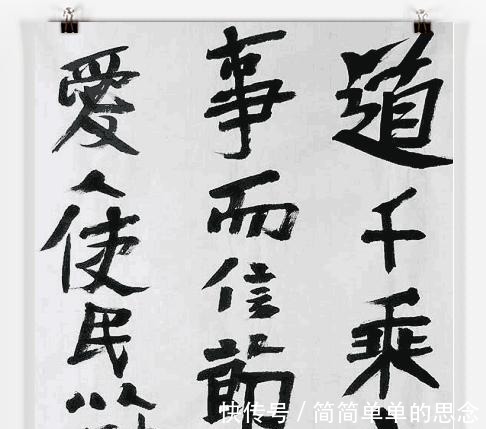 道千乘
事而信節
愛人使民以
快传号/简简单单的思念